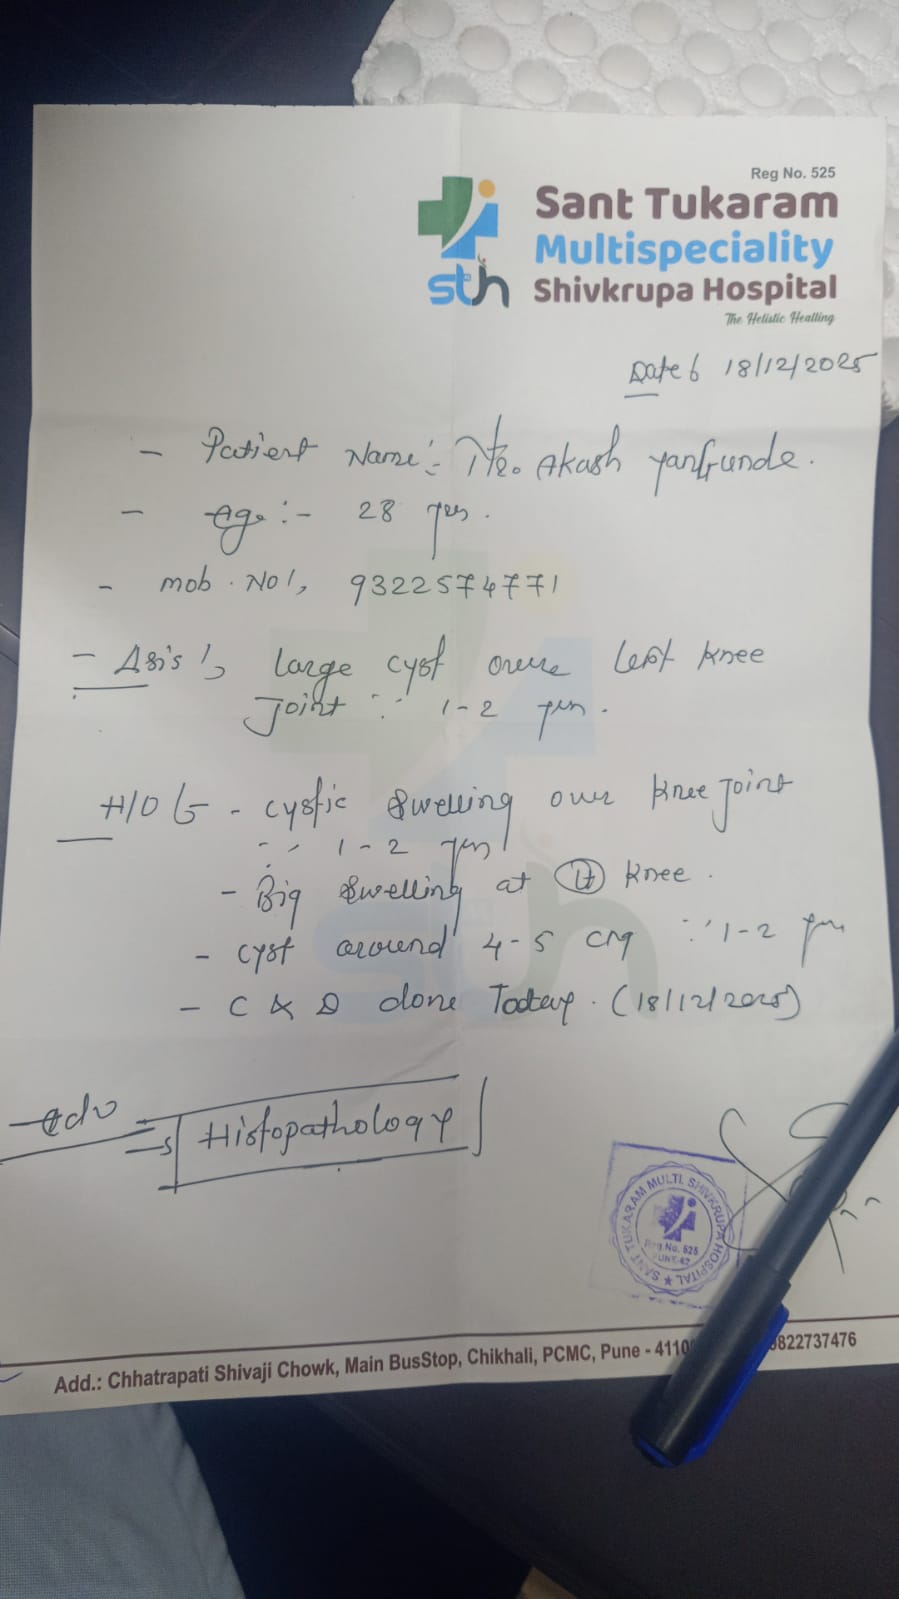 Reg No. 525
Sant Tukaram
Multispeciality
sth Shivkrupa Hospital
The Helistic Healling
Date 18/12/2025
- Patient Name:- Akash
- Age :- 28 yrs.
- mob. No 9322574771
- large cyst over left knee
Joint ∵ 1-2 yrs.
H/O - cystic swelling over knee joint
∵ 1-2 yrs
- Big swelling at Lt knee.
- cyst around 4-5 cm ∵ 1-2 yrs
- C & D done Today. (18/12/2025)
Adv => Histopathology
SANT TUKARAM MULTI. SHIVKRUPA HOSPITAL
Reg.No. 525
PUNE-62
Add.: Chhatrapati Shivaji Chowk, Main BusStop, Chikhali, PCMC, Pune - 4110 9822737476